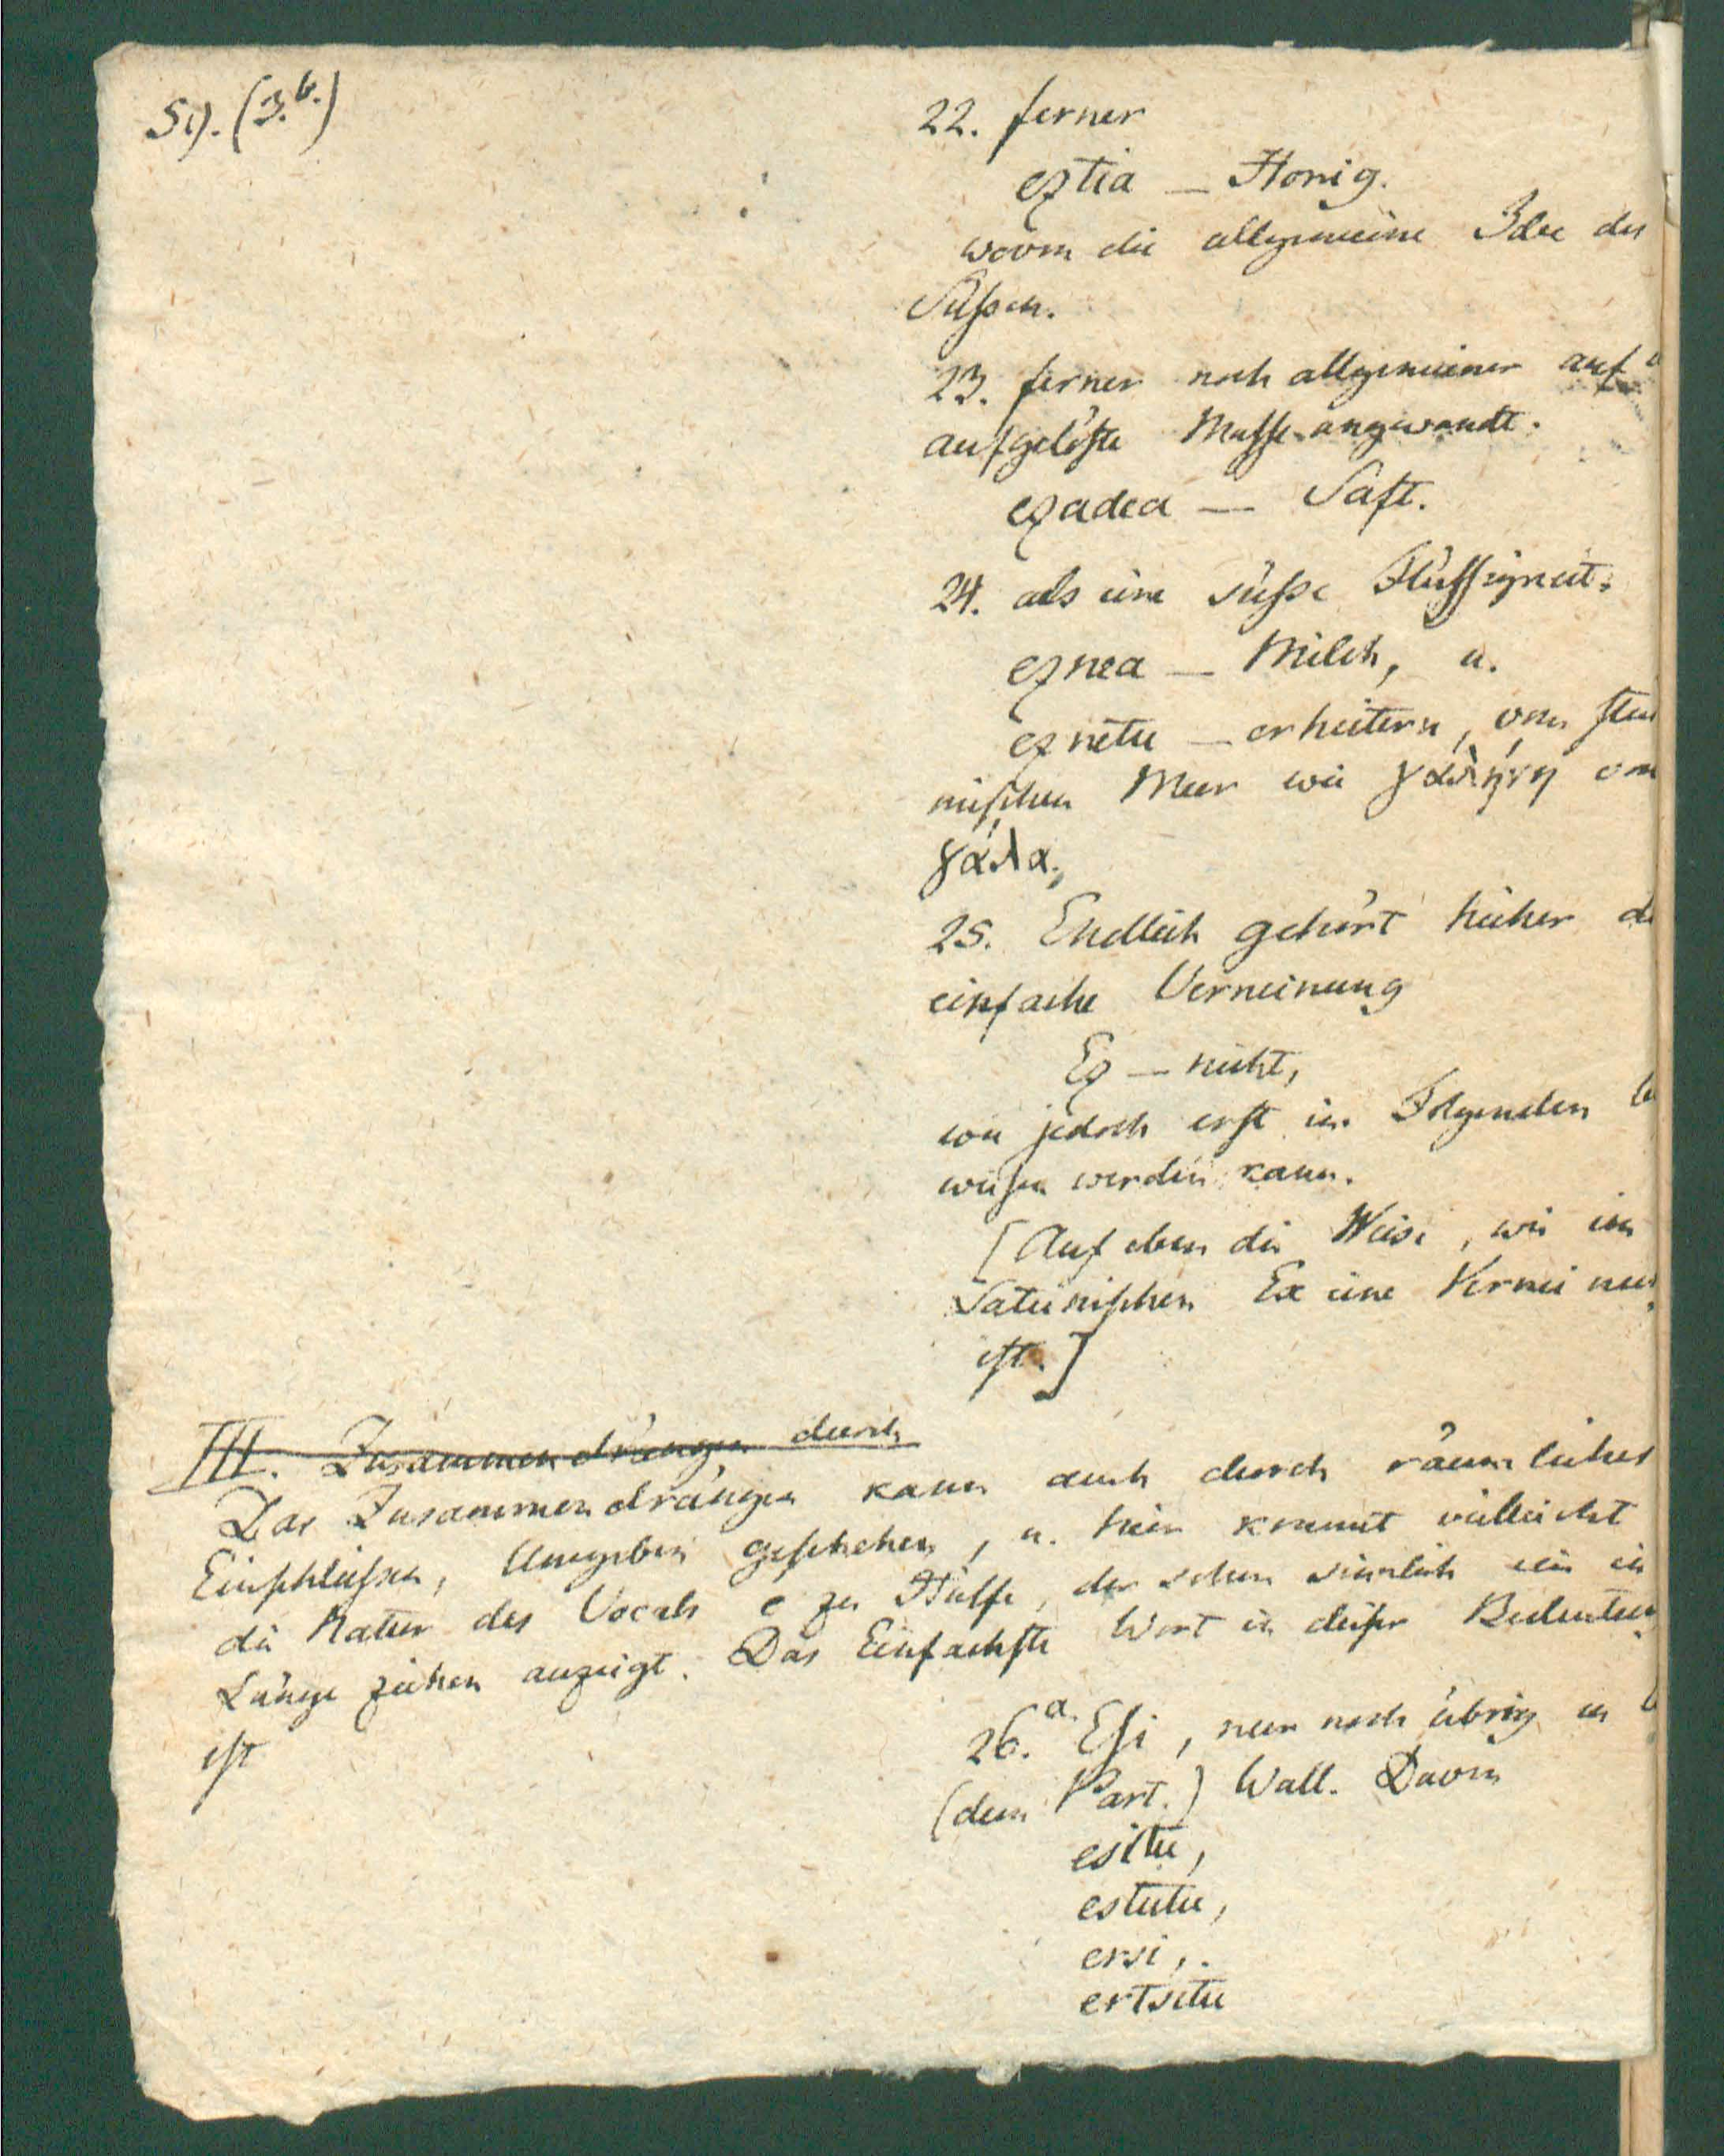 51). (3.b.)
22. ferner
eztia — Honig.
wovon die allgemeine Idee des
Süßen.
23. ferner noch allgemeiner auf
aufgelöste Masse angewandt.
ezadea — Saft.
24. als eine süße Flüssigkeit.
eznea — Milch, u.
eznetu — erheitern, vom
nischen Meer wie γαλήνη von
γάλα.
25. Endlich gehört hieher
einfache Verneinung
Ez — nicht,
wie jedoch erst im Folgenden be
wiesen werden kann.
[Auf eben die Weise, wie im
Lateinischen Ex eine Verneinung
ist.]
III. Zusammendrängen durch
Das Zusammendrängen kann auch durch räumliches
Einschließen, Umgeben geschehen, u. hier kommt vielleicht
die Natur des Vocals e zu Hülfe, der schon sinnlich ein in
Länge ziehen anzeigt. Das Einfachste Wort in dieser Bedeutung
ist
26.a. Esi, nur noch übrig in
(dem Part.) Wall. Davon
esitu,
estutu,
ersi,
ertsitu